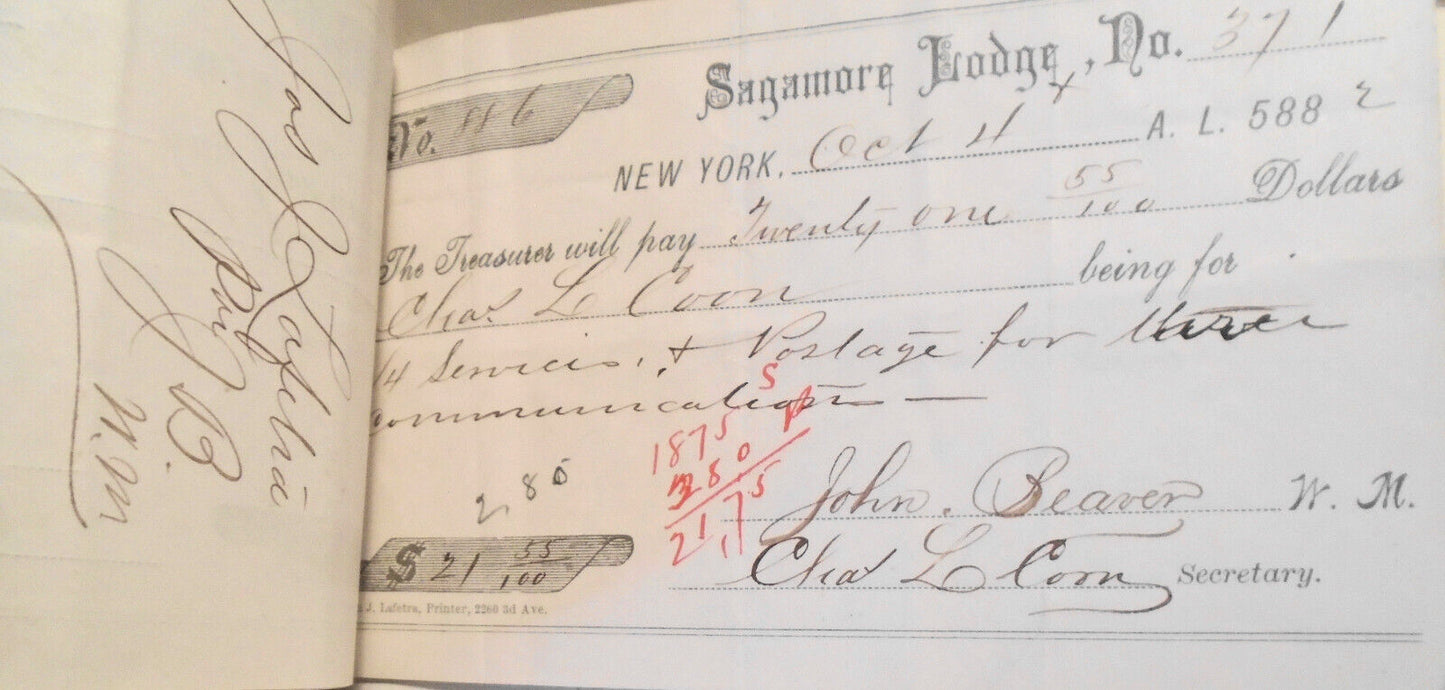 Sagamore Lodge, No. 371
No. 46
NEW YORK, Oct 4 A. L. 5882
The Treasurer will pay Twenty one 55/100 Dollars
Chas L Coon being for
1/4 Services, & Postage for three
communications —
S
1875
280
21,75
2,80
John. Beaver W. M.
$ 21 55/100
Chas L Coon Secretary.
J. Lafetra, Printer, 2260 3d Ave.
Jos J. Lafetra
J B.
W.M